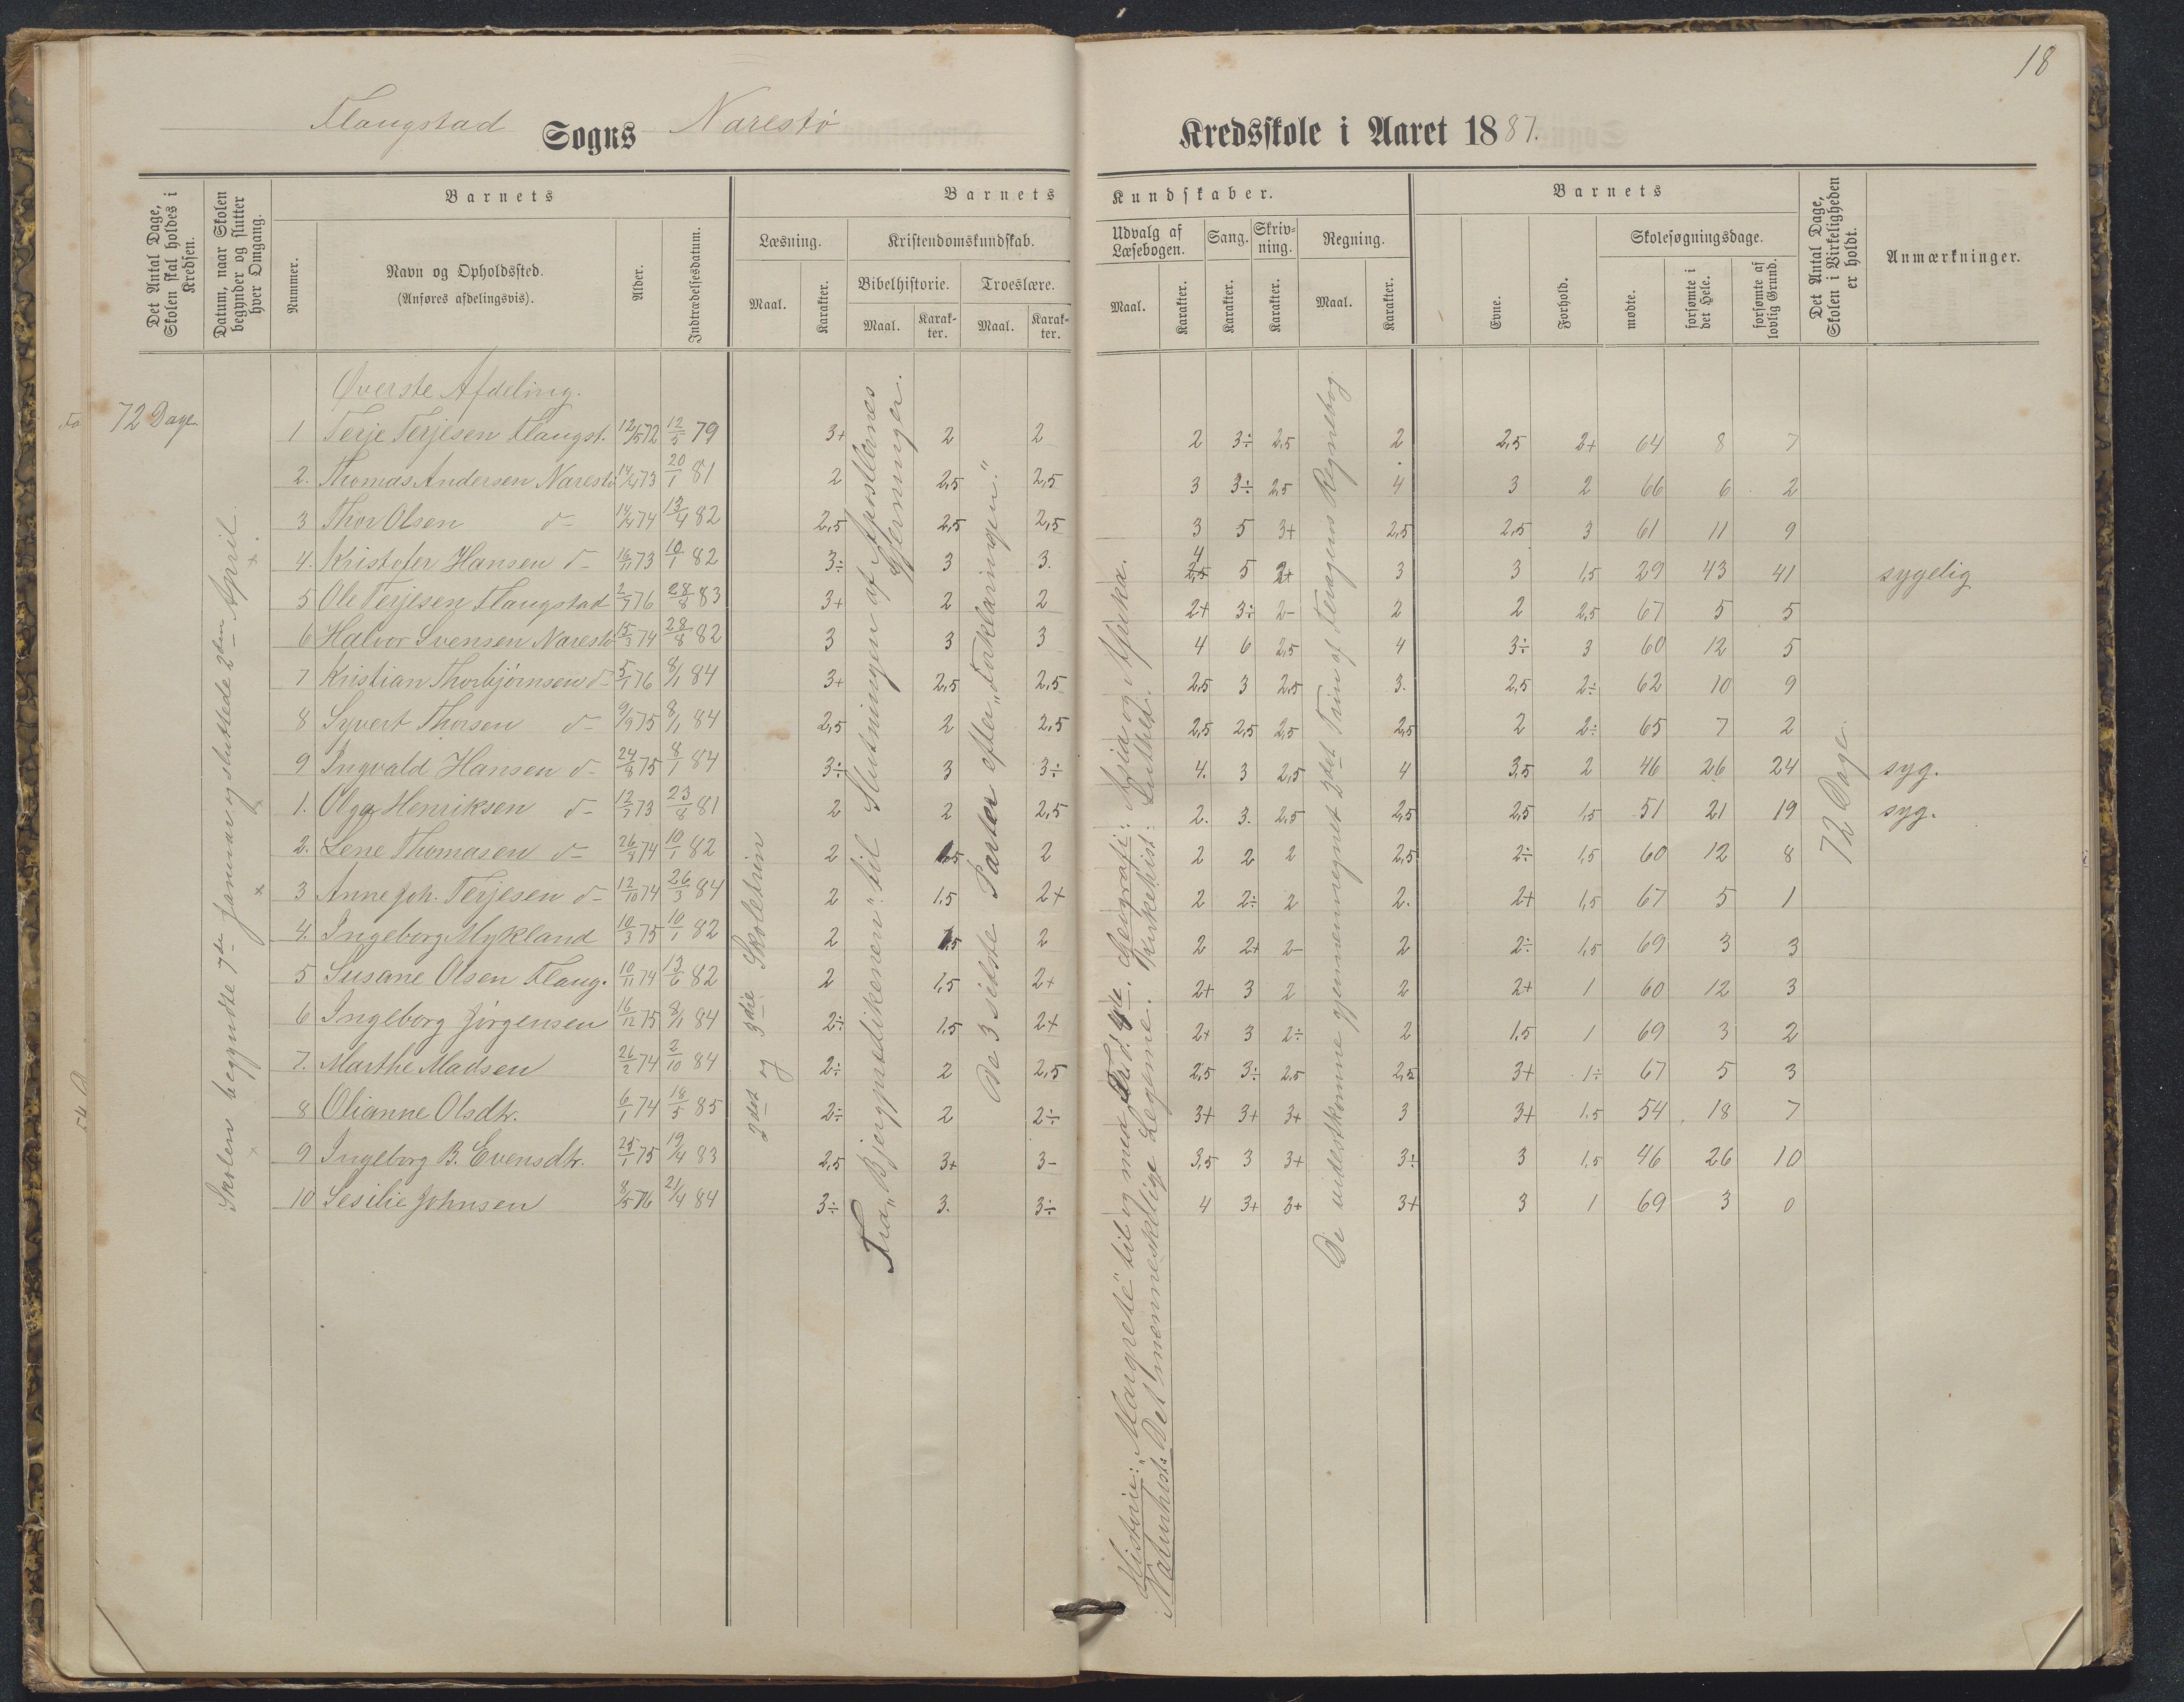 18
Flangstad Sogns Narestø Kredsskole i Aaret 1887.
Det Antal Dage, Skolen skal holdes i Kredsen.
Datum, naar Skolen begynder og slutter hver Omgang.
Barnets
Nummer.
Navn og Opholdssted.
(Anføres afdelingsvis).
Alder.
Indtrædelsesdatum.
Barnets Kundskaber.
Læsning.
Maal.
Karakter.
Kristendomskundskab.
Bibelhistorie.
Maal.
Karakter.
Troeslære.
Maal.
Karakter.
Udvalg af Læsebogen.
Maal.
Karakter.
Sang.
Karakter.
Skrivning.
Karakter.
Regning.
Maal.
Karakter.
Barnets
Evne.
Forhold.
Skolesøgningsdage.
mødte.
forsømte i det Hele.
forsømte af lovlig Grund.
Det Antal Dage, Skolen i Virkeligheden er holdt.
Anmærkninger.
72 Dage
Skolen begyndte 7de Januar og sluttede 2den April.
Øverste Afdeling.
1 Terje Terjesen Flangst. 12/5 72 12/5 79 3+ 2 2 2 3÷ 2,5 2 2,5 2+ 64 8 7
2. Thomas Andersen Narestø 14/4 73 20/1 81 2 2,5 2,5 3 3÷ 2,5 4 3 2 66 6 2
3 Thor Olsen d- 14/4 74 13/4 82 2,5 2,5 2,5 3 5 3+ 2,5 2,5 3 61 11 9
4. Kristofer Hansen d- 16/11 73 10/1 82 3÷ 3 3. 4 5 2+ 3 3 1,5 29 43 41 sygelig
5 Ole Terjesen Flangstad 2/7 76 28/8 83 3+ 2 2 2+ 3÷ 2- 2 2 2,5 67 5 5
6 Halvor Svensen Narestø 15/3 74 28/8 82 3 3 3 4 6 2,5 4 3÷ 3 60 12 5
7 Kristian Thorbjørnsen d- 5/1 76 8/1 84 3+ 2,5 2,5 2,5 3 2,5 3. 2,5 2÷ 62 10 9
8 Syvert Thorsen d- 9/9 75 8/1 84 2,5 2 2,5 2,5 2,5 2,5 2,5 2 2÷ 65 7 2
9 Ingvald Hansen d- 24/8 75 8/1 84 3÷ 3 3÷ 4. 3 2,5 4 3,5 2 46 26 24 syg.
1. Olga Henriksen d- 12/7 73 23/8 81 2 2 2,5 2. 3. 2,5 2,5 2,5 1,5 51 21 19 syg.
2. Lene Thomasen d- 26/8 74 10/1 82 2 1,5 2 2 2 2 2,5 2÷ 1,5 60 12 8
3 Anne Joh. Terjesen d- 12/10 74 26/3 84 2 1,5 2+ 2 2÷ 2 2. 2+ 1,5 67 5 1
4. Ingeborg Mykland 10/3 75 10/1 82 2 1,5 2 2 2+ 2- 2 2÷ 1,5 69 3 3
5 Susane Olsen Flang. 10/11 74 13/6 82 2 1,5 2+ 2+ 3 2 2 2+ 1 60 12 3
6 Ingeborg Jørgensen 16/12 75 8/1 84 2÷ 1,5 2+ 2+ 3 2÷ 2 1,5 1 69 3 2
7. Marthe Madsen 26/2 74 2/10 84 2÷ 2 2,5 2,5 3÷ 2,5 2,5 3+ 1÷ 67 5 3
8 Olianne Olsdtr. 6/1 74 18/5 85 2÷ 2 2÷ 3+ 3+ 3+ 3 3+ 1,5 54 18 7
9 Ingeborg B. Evensdtr. 25/1 75 19/4 83 2,5 3+ 3- 3,5 3 3+ 3÷ 3 1,5 46 26 10
10 Sesilie Johnsen 8/5 76 21/4 84 3÷ 3. 3÷ 4 3+ 3+ 3+ 3 1 69 3 0
2det og 3die Skoletrin
Fra „Bjergprædikenen" til Slutningen af Apostlernes Gjerninger.
De 3 sidste Parter efter „Forklaringen".
Historie: „Margrete" til og med Frd. 4de. Geografi: Asia og Afrika.
Naturhist: Det menneskelige Legeme. Kirkehist: Luther.
De videstkomne gjennemregnet 2det Trin af Feragens Regnebog.
72 Dage